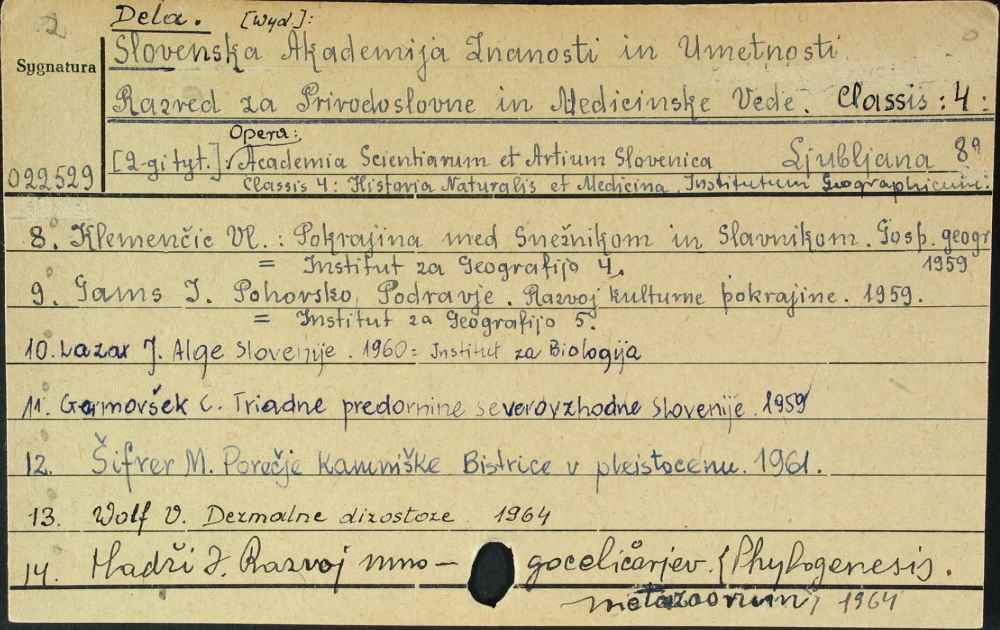 2
Dela. [Wyd]:
Slovenska Akademija Znanosti in Umetnosti
Sygnatura
Razred za Prirodoslovne in Medicinske Vede. Classis: 4:
Opera:
[2-gi tyt.]: Academia Scientiarum et Artium Slovenica Ljubljana 8º
022529
Classis 4: Historia Naturalis et Medicina, Institutum Geographicum.
8. Klemenčic Vl.: Pokrajina med Snežnikom in Slavnikom. Gosp. geogr
= Institut za Geografijo 4. 1959
9. Gams I. Pohorsko Podravje. Razvoj kulturne pokrajine. 1959.
= Institut za Geografijo 5.
10. Lazar J. Alge Slovenije. 1960 = Institut za Biologija
11. Germovšek C. Triadne predornine severovzhodne Slovenije. 1959
12. Šifrer M. Porečje Kamniške Bistrice v pleistocenu. 1961.
13. Wolf V. Dezmalne dizostoze 1964
14. Hadži J. Razvoj mno- goceličarjev. (Phylogenesis.
metazoorum) 1964